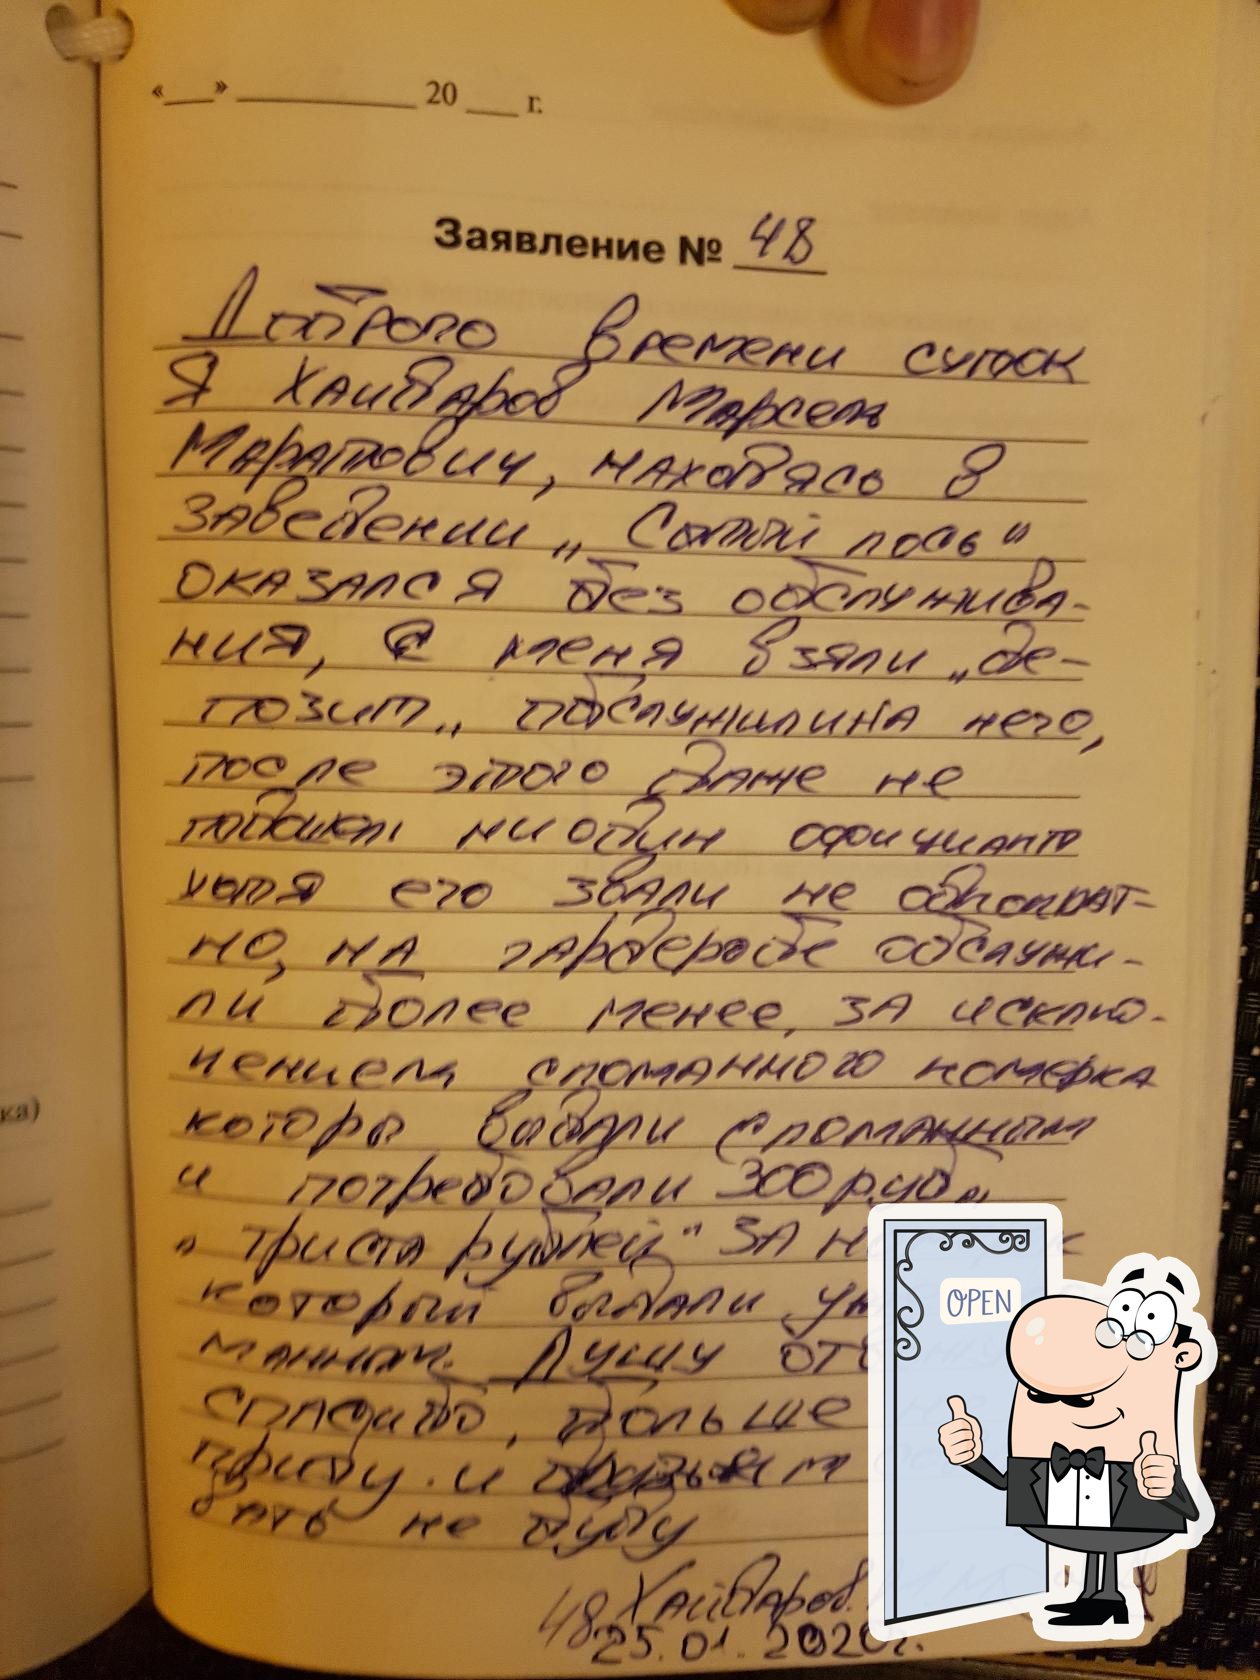 «__» ____________ 20 ___ г.
Заявление № 48
Доброго времени суток
Я Хайдаров Марсель
Маратович, находясь в
заведении „Сотый лось"
оказался без обслужива-
ния, С меня взяли „де-
позит„ обслужили на него,
после этого даже не
подошел ни один официант
хотя его звали не однократ-
но, на гардеробе обслужи-
ли более менее, за исклю-
чением сломанного номерка
которы выдали сломанным
и потребовали 300 руб„
„триста рублей" за
который выдали
манным. Душу
спасибо, больше
приду. и друзьям
дать не буду
48 Хайдаров.
25.01.2020г.
OPEN
ка)